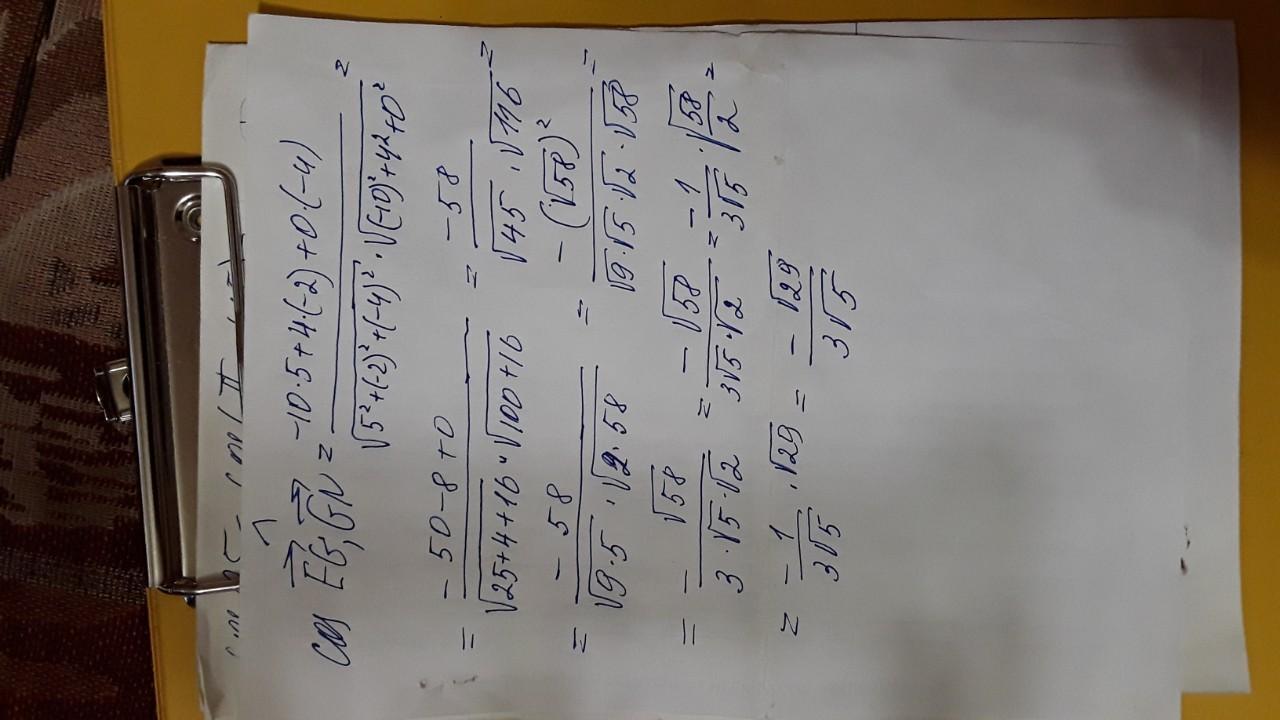 cos EG, GN = -10·5+4·(-2)+0·(-4) / √5²+(-2)²+(-4)² · √(-10)²+4²+0² =
= -50-8+0 / √25+4+16 · √100+16 = -58 / √45 · √116 =
= -58 / √9·5 · √2·58 = -(√58)² / √9·√5·√2·√58 =
= - √58 / 3·√5·√2 = -√58 / 3√5·√2 = -1 / 3√5 · √58/2 =
= - 1 / 3√5 · √29 = - √29 / 3√5